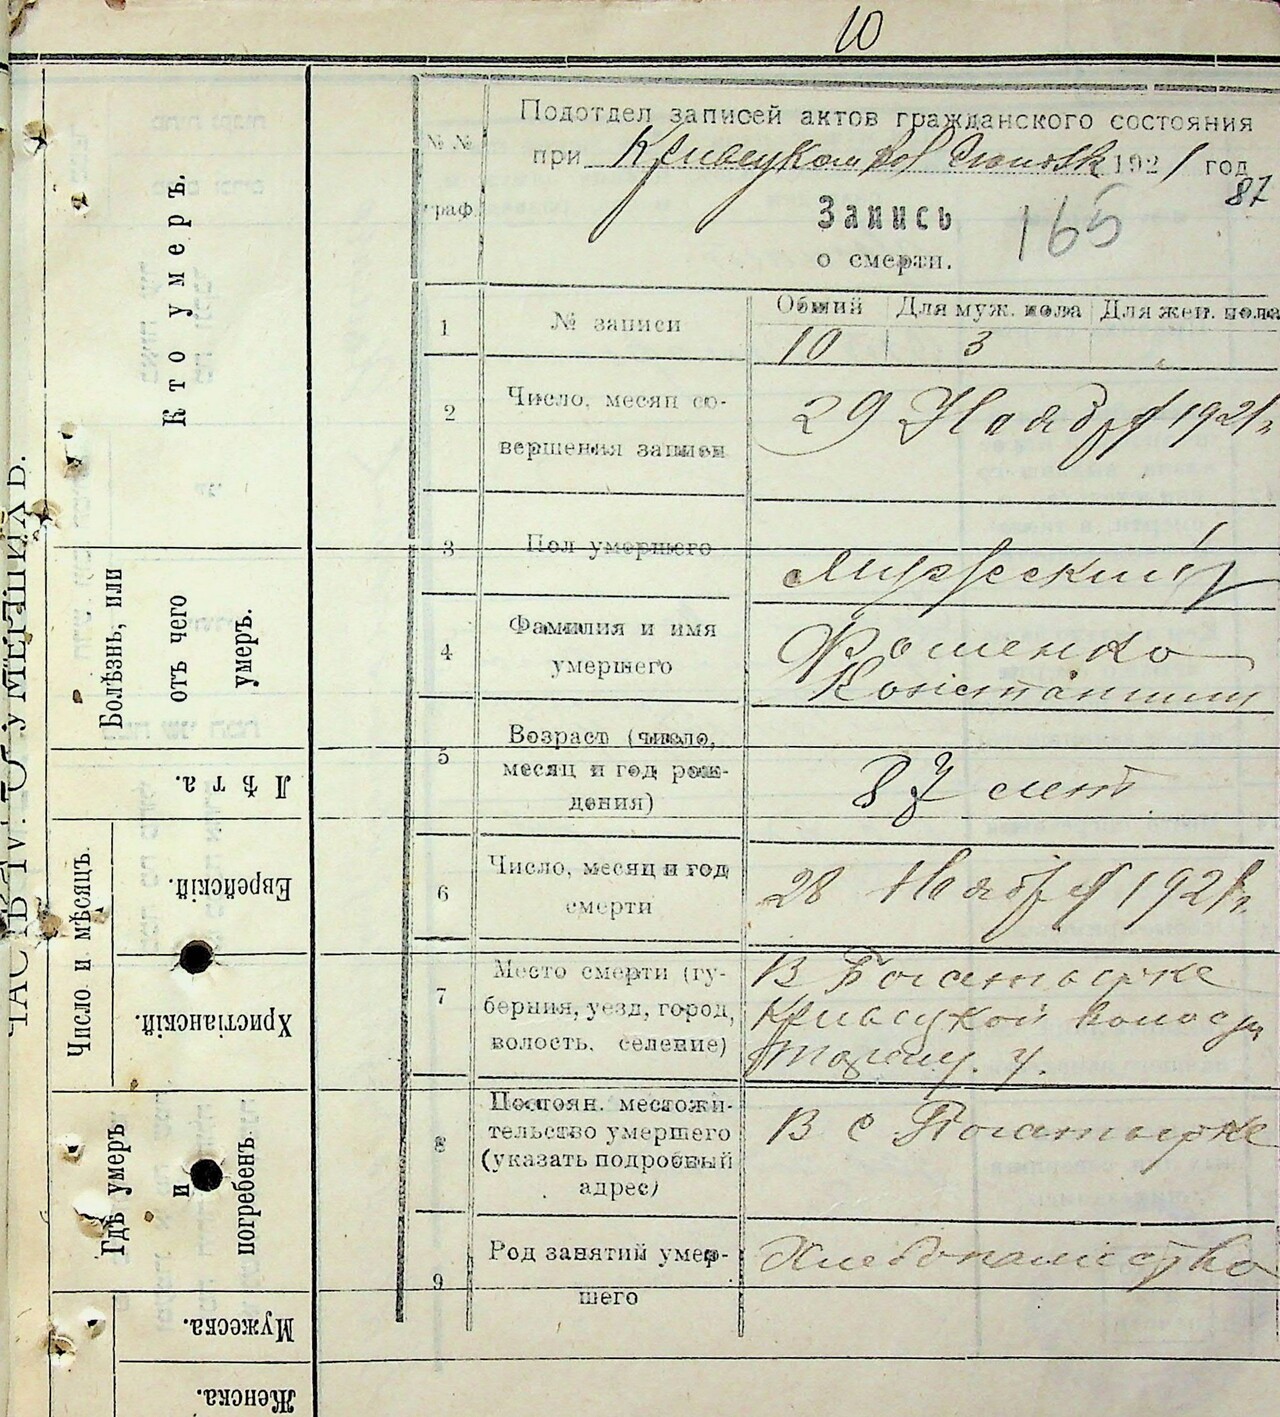 10
Подотдел записей актов гражданского состояния
при 1921 год
87
№№ граф.
Запись
165
о смерти.
1 № записи
Общий Для муж. пола Для жен. пола
10 3
2 Число, месяц со-
вершения записи
29 Ноября 1921 г
3 Пол умершего
Мужеский
4 Фамилия и имя
умершего
Фоменко
Константин
5 Возраст (число,
месяц и год рож-
дения)
87 лет
6 Число, месяц и год
смерти
28 Ноября 1921 г.
7 Место смерти (гу-
берния, уезд, город,
волость, селение)
В Богатырке
Кривецкой волости
у.
8 Постоян. местожи-
тельство умершего
(указать подробный
адрес)
В с Богатырке
9 Род занятий умер-
шего
Хлебопашество
ЧАСТЬ III. О УМЕРШИХЪ.
Кто умеръ.
Болѣзнь, или
отъ чего
умеръ.
Лѣта.
Число и мѣсяцъ.
Еврейскій.
Христіанскій.
Гдѣ умеръ
и
погребенъ
Мужеска.
Женска.